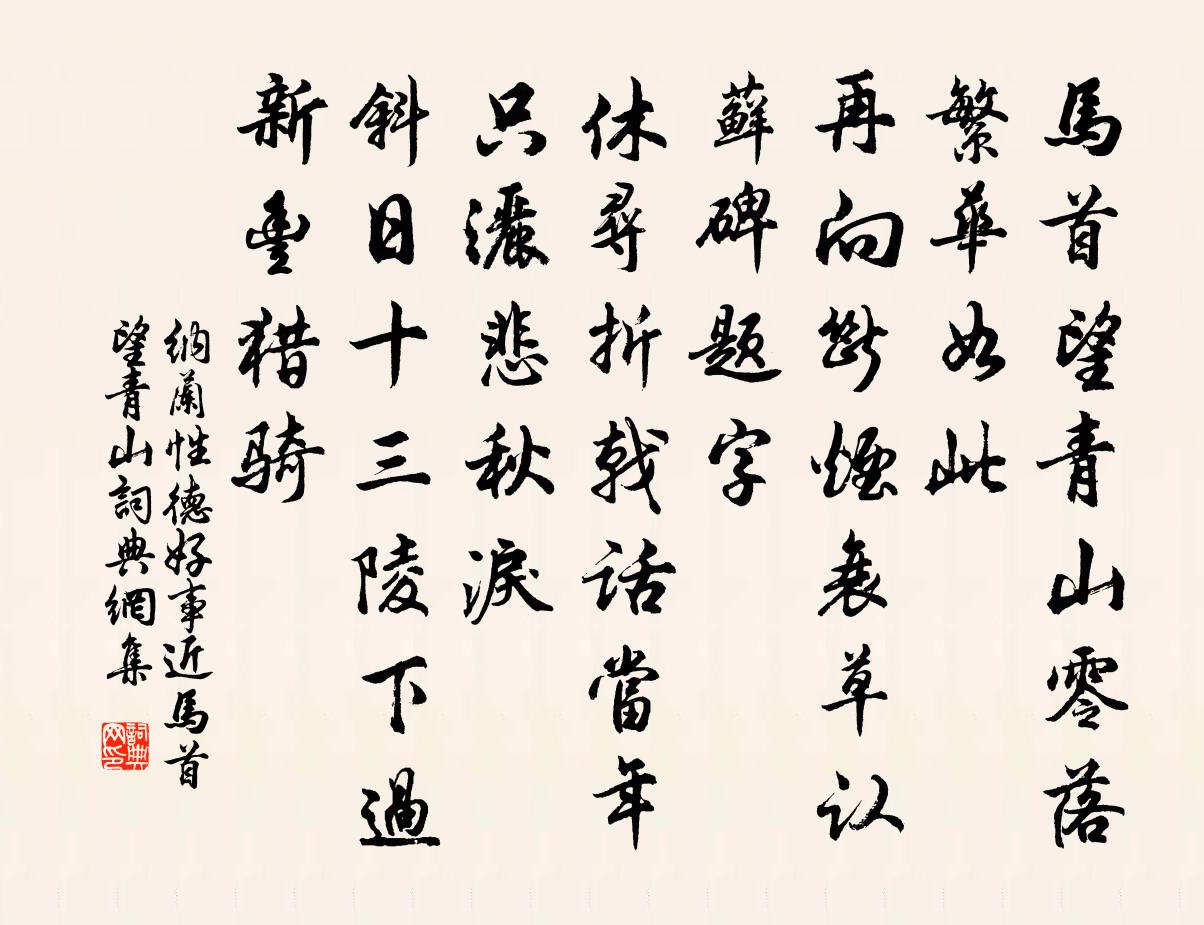 馬首望青山零落
繁華如此
再向斷煙衰草认
蘚碑题字
休尋折戟話當年
只灑悲秋淚
斜日十三陵下過
新豐猎骑
納蘭性德好事近馬首
望青山詞典網集
詞典
网印